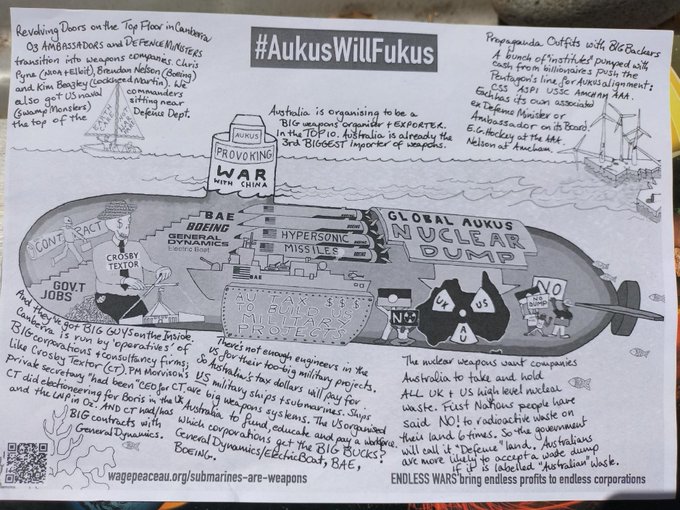 #AukusWillFukus
Revolving Doors on the Top Floor in Canberra
O3 AMBASSADORS and DEFENCE MINISTERS
transition into weapons companies. Chris
Pyne (NIOA + Elbit), Brendon Nelson (Boeing)
and Kim Beazley (Lockheed Martin). We
also got US naval commanders
(Swamp Monsters) sitting near
the top of the Defence Dept.
Australia is organising to be a
BIG weapons organiser + EXPORTER.
In the TOP 10. Australia is already the
3rd BIGGEST importer of weapons.
Propaganda Outfits with BIG Backers
A bunch of "institutes" pumped with
cash from billionaires push the
Pentagon's line, for AUKUS alignment:
CSS ASPI USSC AMCHAM AAA.
Each has its own associated
ex Defense Minister or
Ambassador on its Board.
E.G. Hockey at the AAA.
Nelson at Amcham.
AUKUS
PROVOKING
WAR
WITH CHINA
CONTRACT
GOV.T
JOBS
CROSBY
TEXTOR
BAE
BOEING
GENERAL
DYNAMICS
Electric Boat
HYPERSONIC
MISSILES
BOEING
BOEING
BOEING
BAE
AU TAX $$$
TO BUILD US
MILITARY
PROJECTS
GLOBAL AUKUS
NUCLEAR
DUMP
NO
UK
US
AU
NO
NO
DUMP
And they've got BIG GUYS on the Inside.
Canberra is run by 'operatives' of
BIG corporations + consultancy firms;
like Crosby Textor (CT). PM Morrison's
private secretary "had been" CEO for CT.
CT did electioneering for Boris in the UK
and the LNP in Oz. AND CT had/has
BIG contracts with
General Dynamics.
There's not enough engineers in the
US for their too-big military projects.
So Australia's tax dollars will pay for
US military ships + submarines. Ships
are big weapons systems. The US organised
Australia to fund, educate and pay a workforce.
Which corporations get the BIG BUCKS?
General Dynamics/Electric Boat, BAE,
BOEING.
The nuclear weapons want companies
Australia to take and hold
ALL UK + US high level nuclear
waste. First Nations people have
said NO! to radioactive waste on
their land 6 times. So the government
will call it "Defense" land. Australians
are more likely to accept a waste dump
if it is labelled "Australian" Waste.
wagepeaceau.org/submarines-are-weapons
ENDLESS WARS bring endless profits to endless corporations